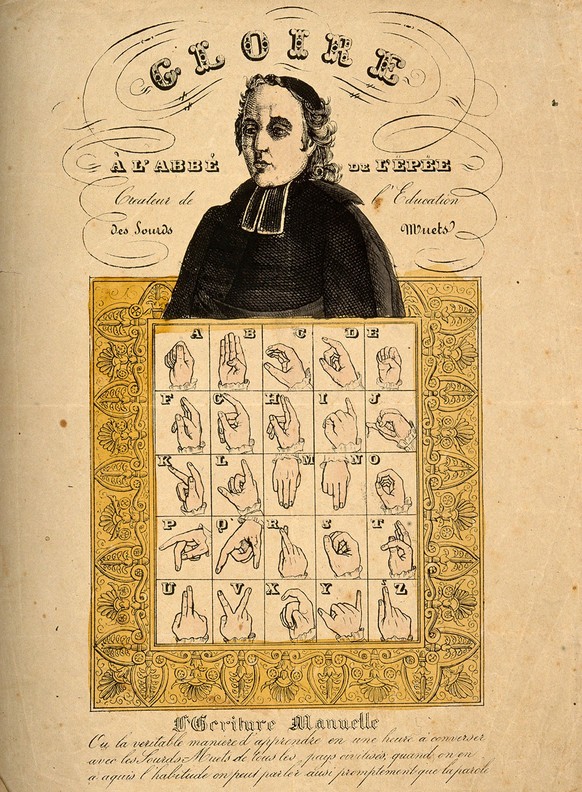 GLOIRE
À L'ABBÉ DE L'ÉPÉE
Createur de l'Education
des Sourds Muets
A B C D E
F G H I J
K L M N O
P Q R S T
U V X Y Z
l'Ecriture Manuelle
Ou la veritable maniere d'apprendre en une heure a converser
avec les Sourds-Muets de tous les pays civilisés, quand on en
a aquis l'habitude on peut parler ausi promptement que la parole